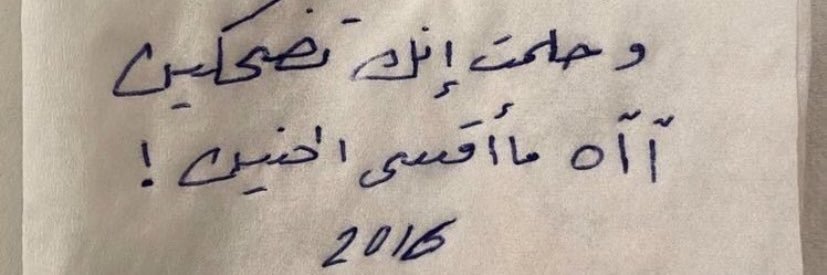 و حلمت إنك تضحكين
آآآه ما أقسى الحنين !
2016